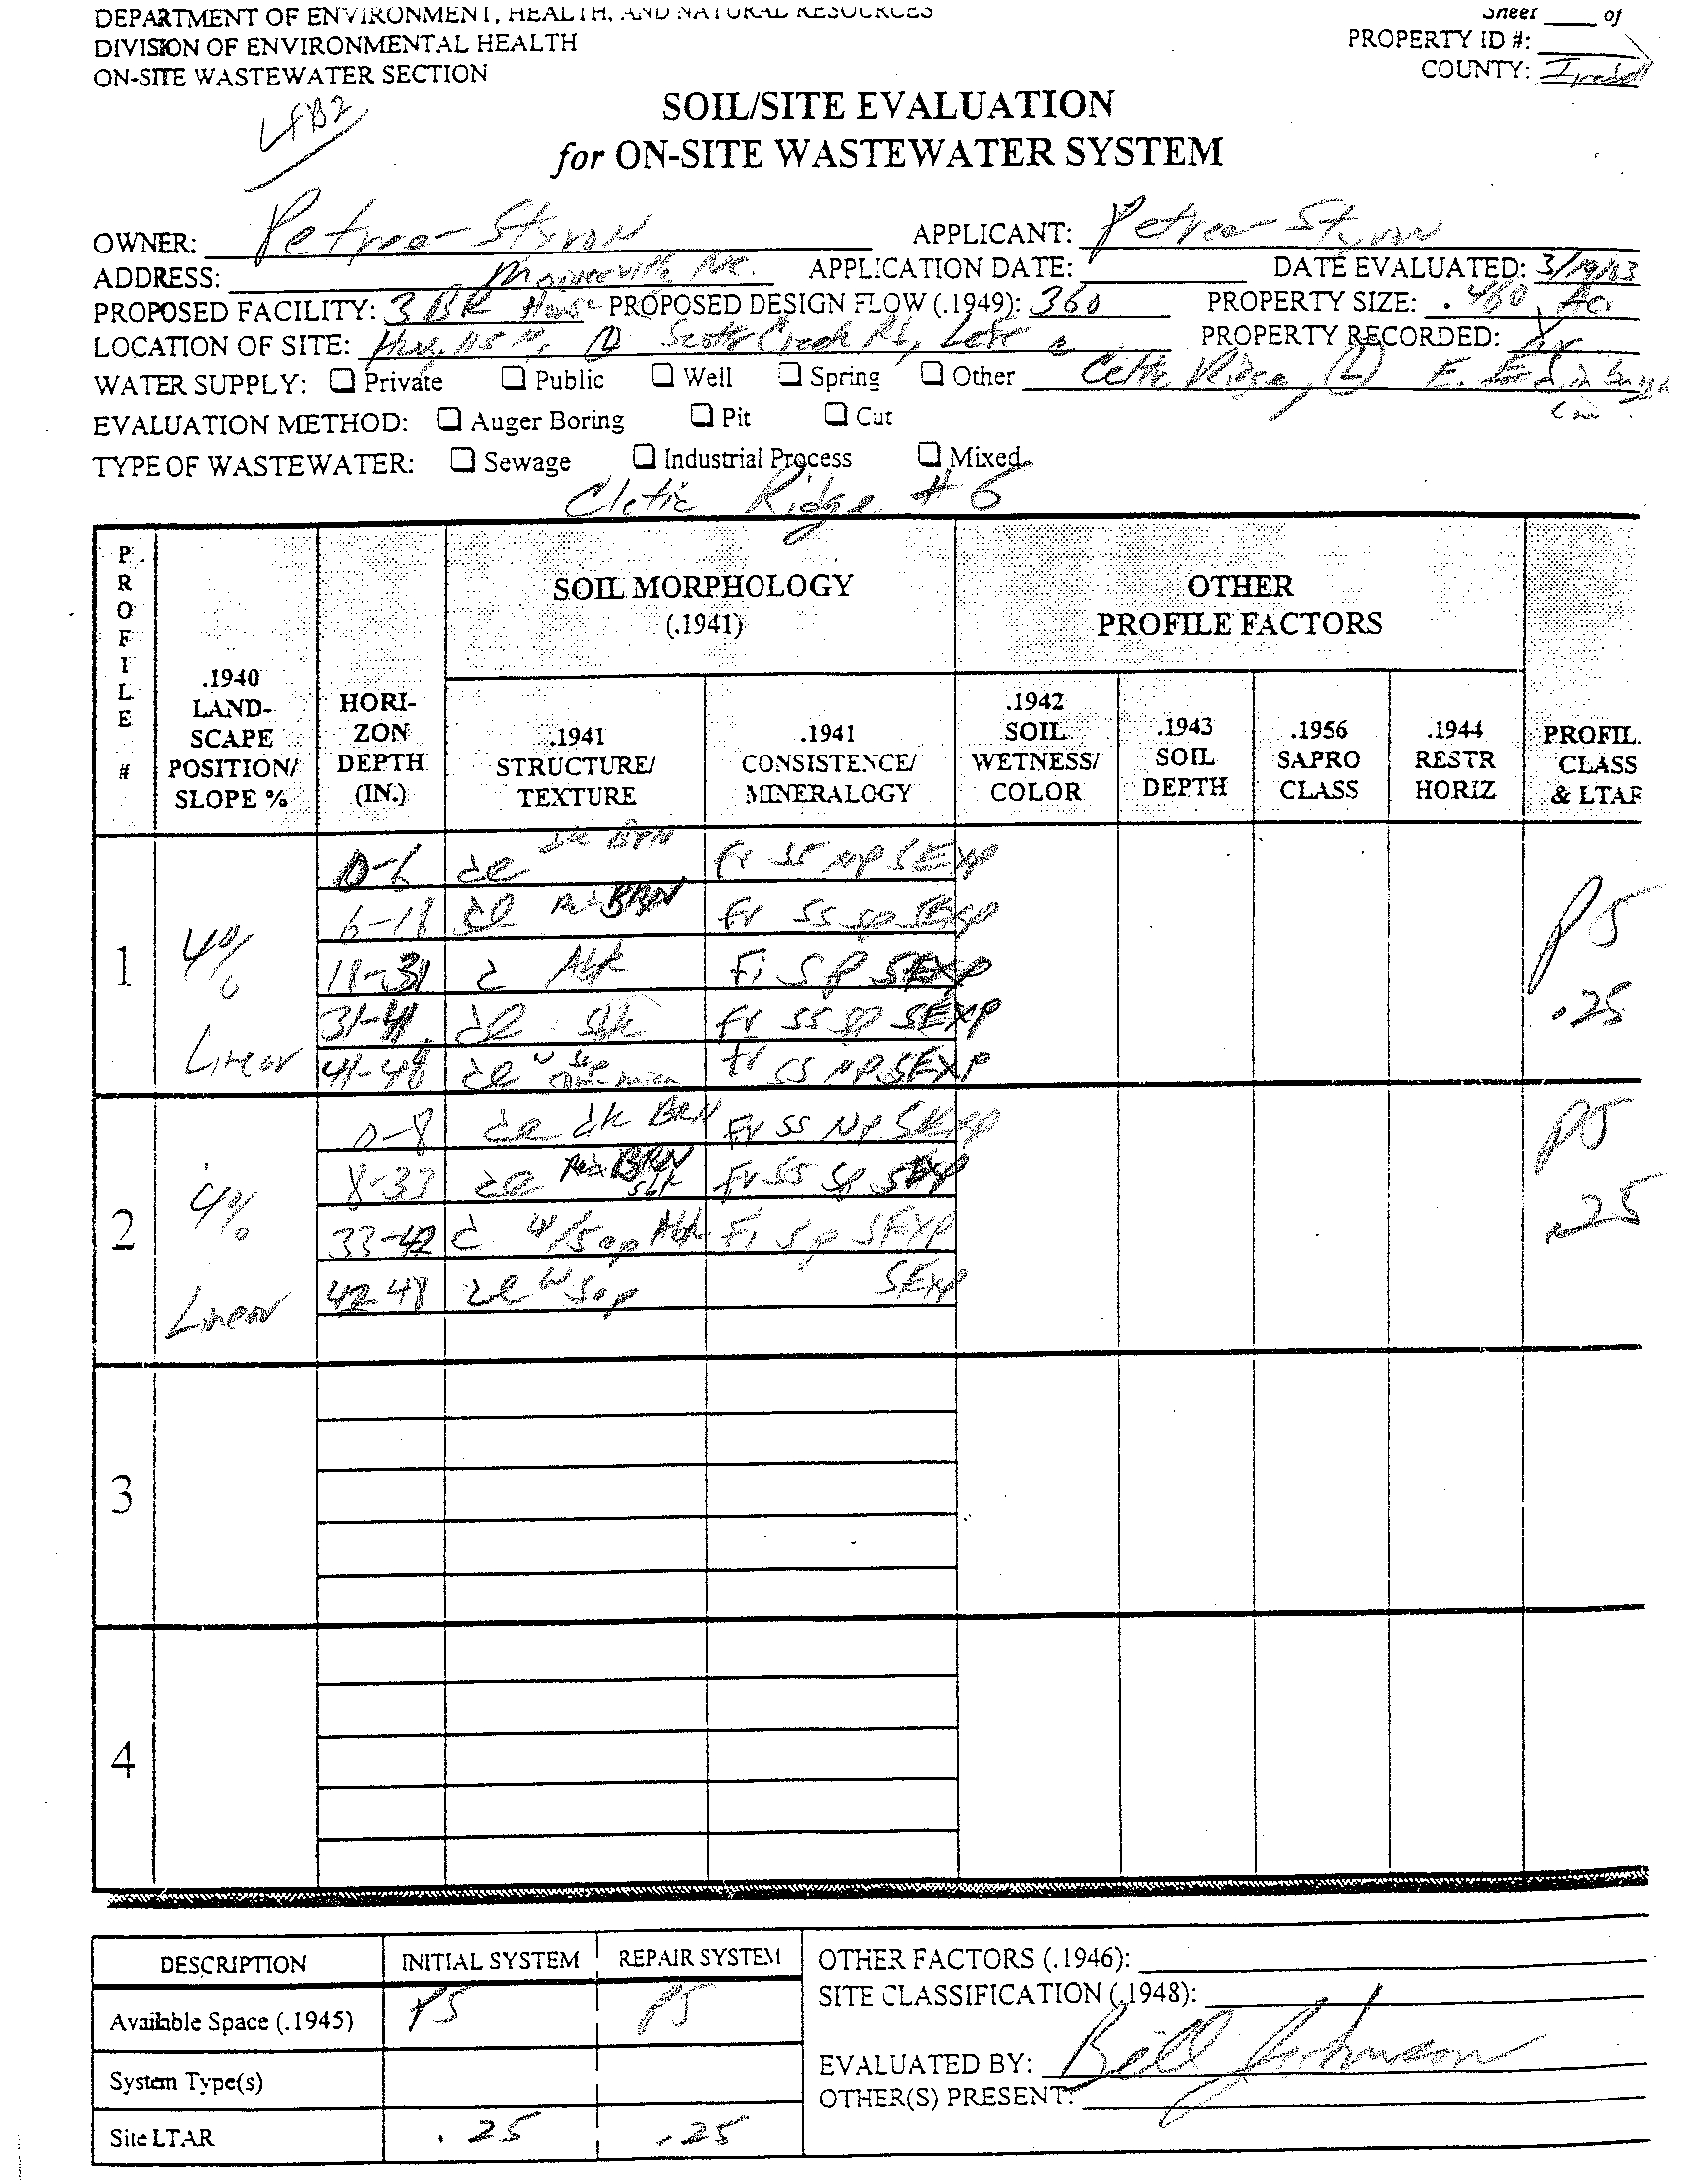 DEPARTMENT OF ENVIRONMENT, HEALTH, AND NATURAL RESOURCES
DIVISION OF ENVIRONMENTAL HEALTH
ON-SITE WASTEWATER SECTION
Sheet ____ of
PROPERTY ID #:
COUNTY: Iredell
SOIL/SITE EVALUATION
for ON-SITE WASTEWATER SYSTEM
OWNER: Petrea-Styron APPLICANT: Petrea-Styron
ADDRESS: Mooresville NC. APPLICATION DATE: DATE EVALUATED: 3/19/03
PROPOSED FACILITY: 3 BR House PROPOSED DESIGN FLOW (.1949): 360 PROPERTY SIZE: .460 Ac
LOCATION OF SITE: Hwy. 115 Creek Rd, PROPERTY RECORDED:
WATER SUPPLY: ❑ Private ❑ Public ❑ Well ❑ Spring ❑ Other Ridge, (L) E.
EVALUATION METHOD: ❑ Auger Boring ❑ Pit ❑ Cut
TYPE OF WASTEWATER: ❑ Sewage ❑ Industrial Process ❑ Mixed
Cletic Ridge # 6
PROFILE #
.1940 LAND-SCAPE POSITION/ SLOPE %
HORI-ZON DEPTH (IN.)
SOIL MORPHOLOGY (.1941)
.1941 STRUCTURE/ TEXTURE
.1941 CONSISTENCE/ MINERALOGY
OTHER PROFILE FACTORS
.1942 SOIL WETNESS/ COLOR
.1943 SOIL DEPTH
.1956 SAPRO CLASS
.1944 RESTR HORIZ
PROFIL. CLASS & LTAR
1 4% Linear PS .25
0-6 cl dk BRN Fr SS NP SEXP
6-18 cl Red BRN Fr SS SP SEXP
18-31 c Abk Fi S P SEXP
31-41 cl sbk Fr SS SP SEXP
41-48 cl w sap Fr SS NP SEXP
2 4% Linear PS .25
0-8 cl dk BRN Fr SS NP SEXP
8-33 cl Red BRN sbk Fr SS SP SEXP
33-42 c w/sap Abk Fi S P SEXP
42-48 cl w sap SEXP
3
4
DESCRIPTION INITIAL SYSTEM REPAIR SYSTEM
Available Space (.1945) PS PS
System Type(s)
Site LTAR .25 .25
OTHER FACTORS (.1946):
SITE CLASSIFICATION (.1948):
EVALUATED BY: Bill Johnson
OTHER(S) PRESENT: